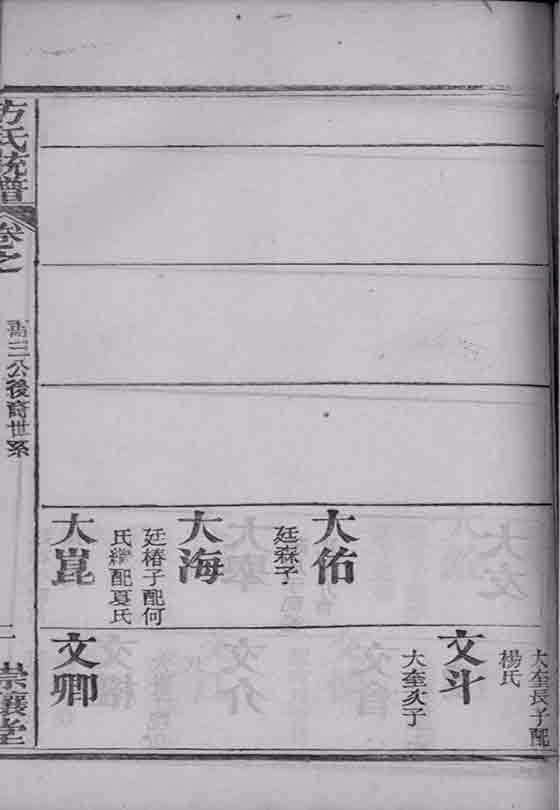 大佑
廷森子
大海
廷椿子配何
氏繼配夏氏
大崑
大奎長子配
楊氏
文斗
大奎次子
文卿
方氏統譜
卷之
壽三公後裔世系
一
崇讓堂